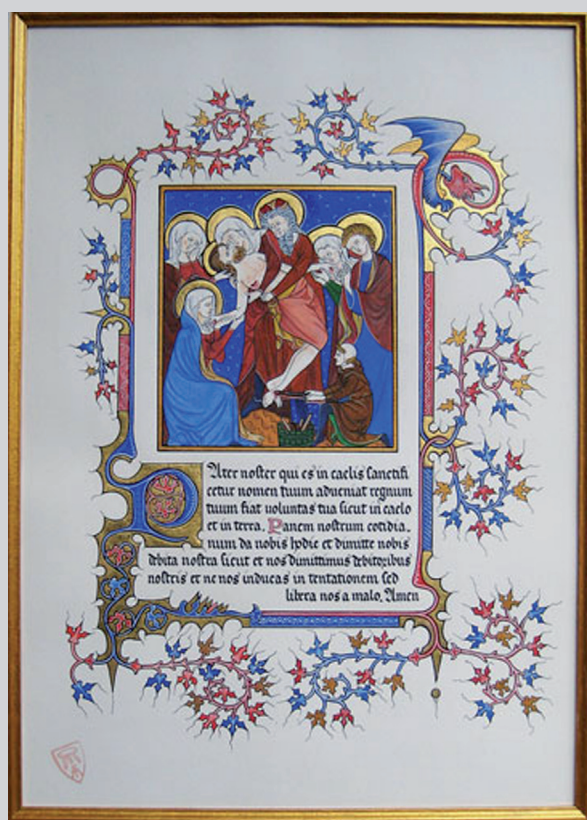 Pater noster qui es in caelis sanctifi
cetur nomen tuum adueniat regnum
tuum fiat uoluntas tua sicut in caelo
et in terra. Panem nostrum cotidia_
num da nobis hodie et dimitte nobis
debita nostra sicut et nos dimittimus debitoribus
nostris et ne nos inducas in tentationem sed
libera nos a malo. Amen